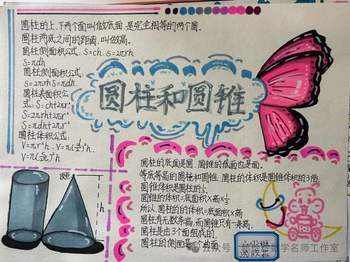 圆柱的上、下两个面叫做底面,是完全相等的两个圆。
圆柱两底之间的距离,叫做高。
圆柱侧面积公式: S=ch. S=2πrh
S=πdh
圆柱侧面积公式
S=2πrh
S=πdh
圆柱表面积公
式: S=ch+2πr²
S=2πrh+2πr²
S=πdh+2πr²
圆柱体积公式
V=πr²h.
圆柱和圆锥
圆柱的底面是圆,圆锥的底面也是圆。
等底等高的圆柱和圆锥,圆柱的体积是圆锥体积的3倍
圆锥体积是圆柱的⅓
圆锥的体积=底面积×高×⅓
所以,圆柱的体积=底面积×高
圆柱有无数条高,而圆锥只有一条高。
圆柱是由3个面组成的
圆柱的侧面是一个曲面
h
名师工作室